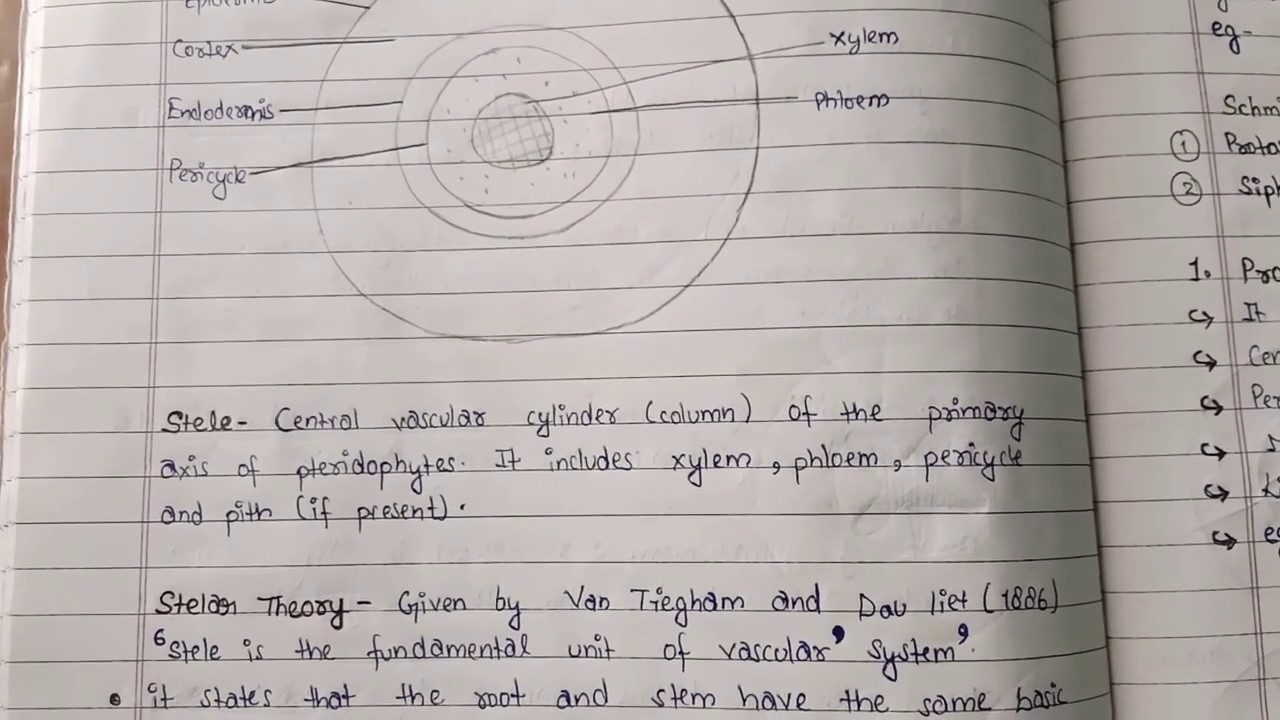 Cortex
xylem
Endodermis
Phloem
Pericycle
Stele- Central vascular cylinder (column) of the primary
axis of pteridophytes. It includes xylem, phloem, pericycle
and pith (if present).
Stelar Theory - Given by Van Tiegham and Dau liet (1886)
'Stele is the fundamental unit of vascular' system'.
• it states that the root and stem have the same basic
eg-
Schm
① Proto
② Siph
1. Pro
↪ It
↪ Cen
↪ Per
↪
↪
↪ eg